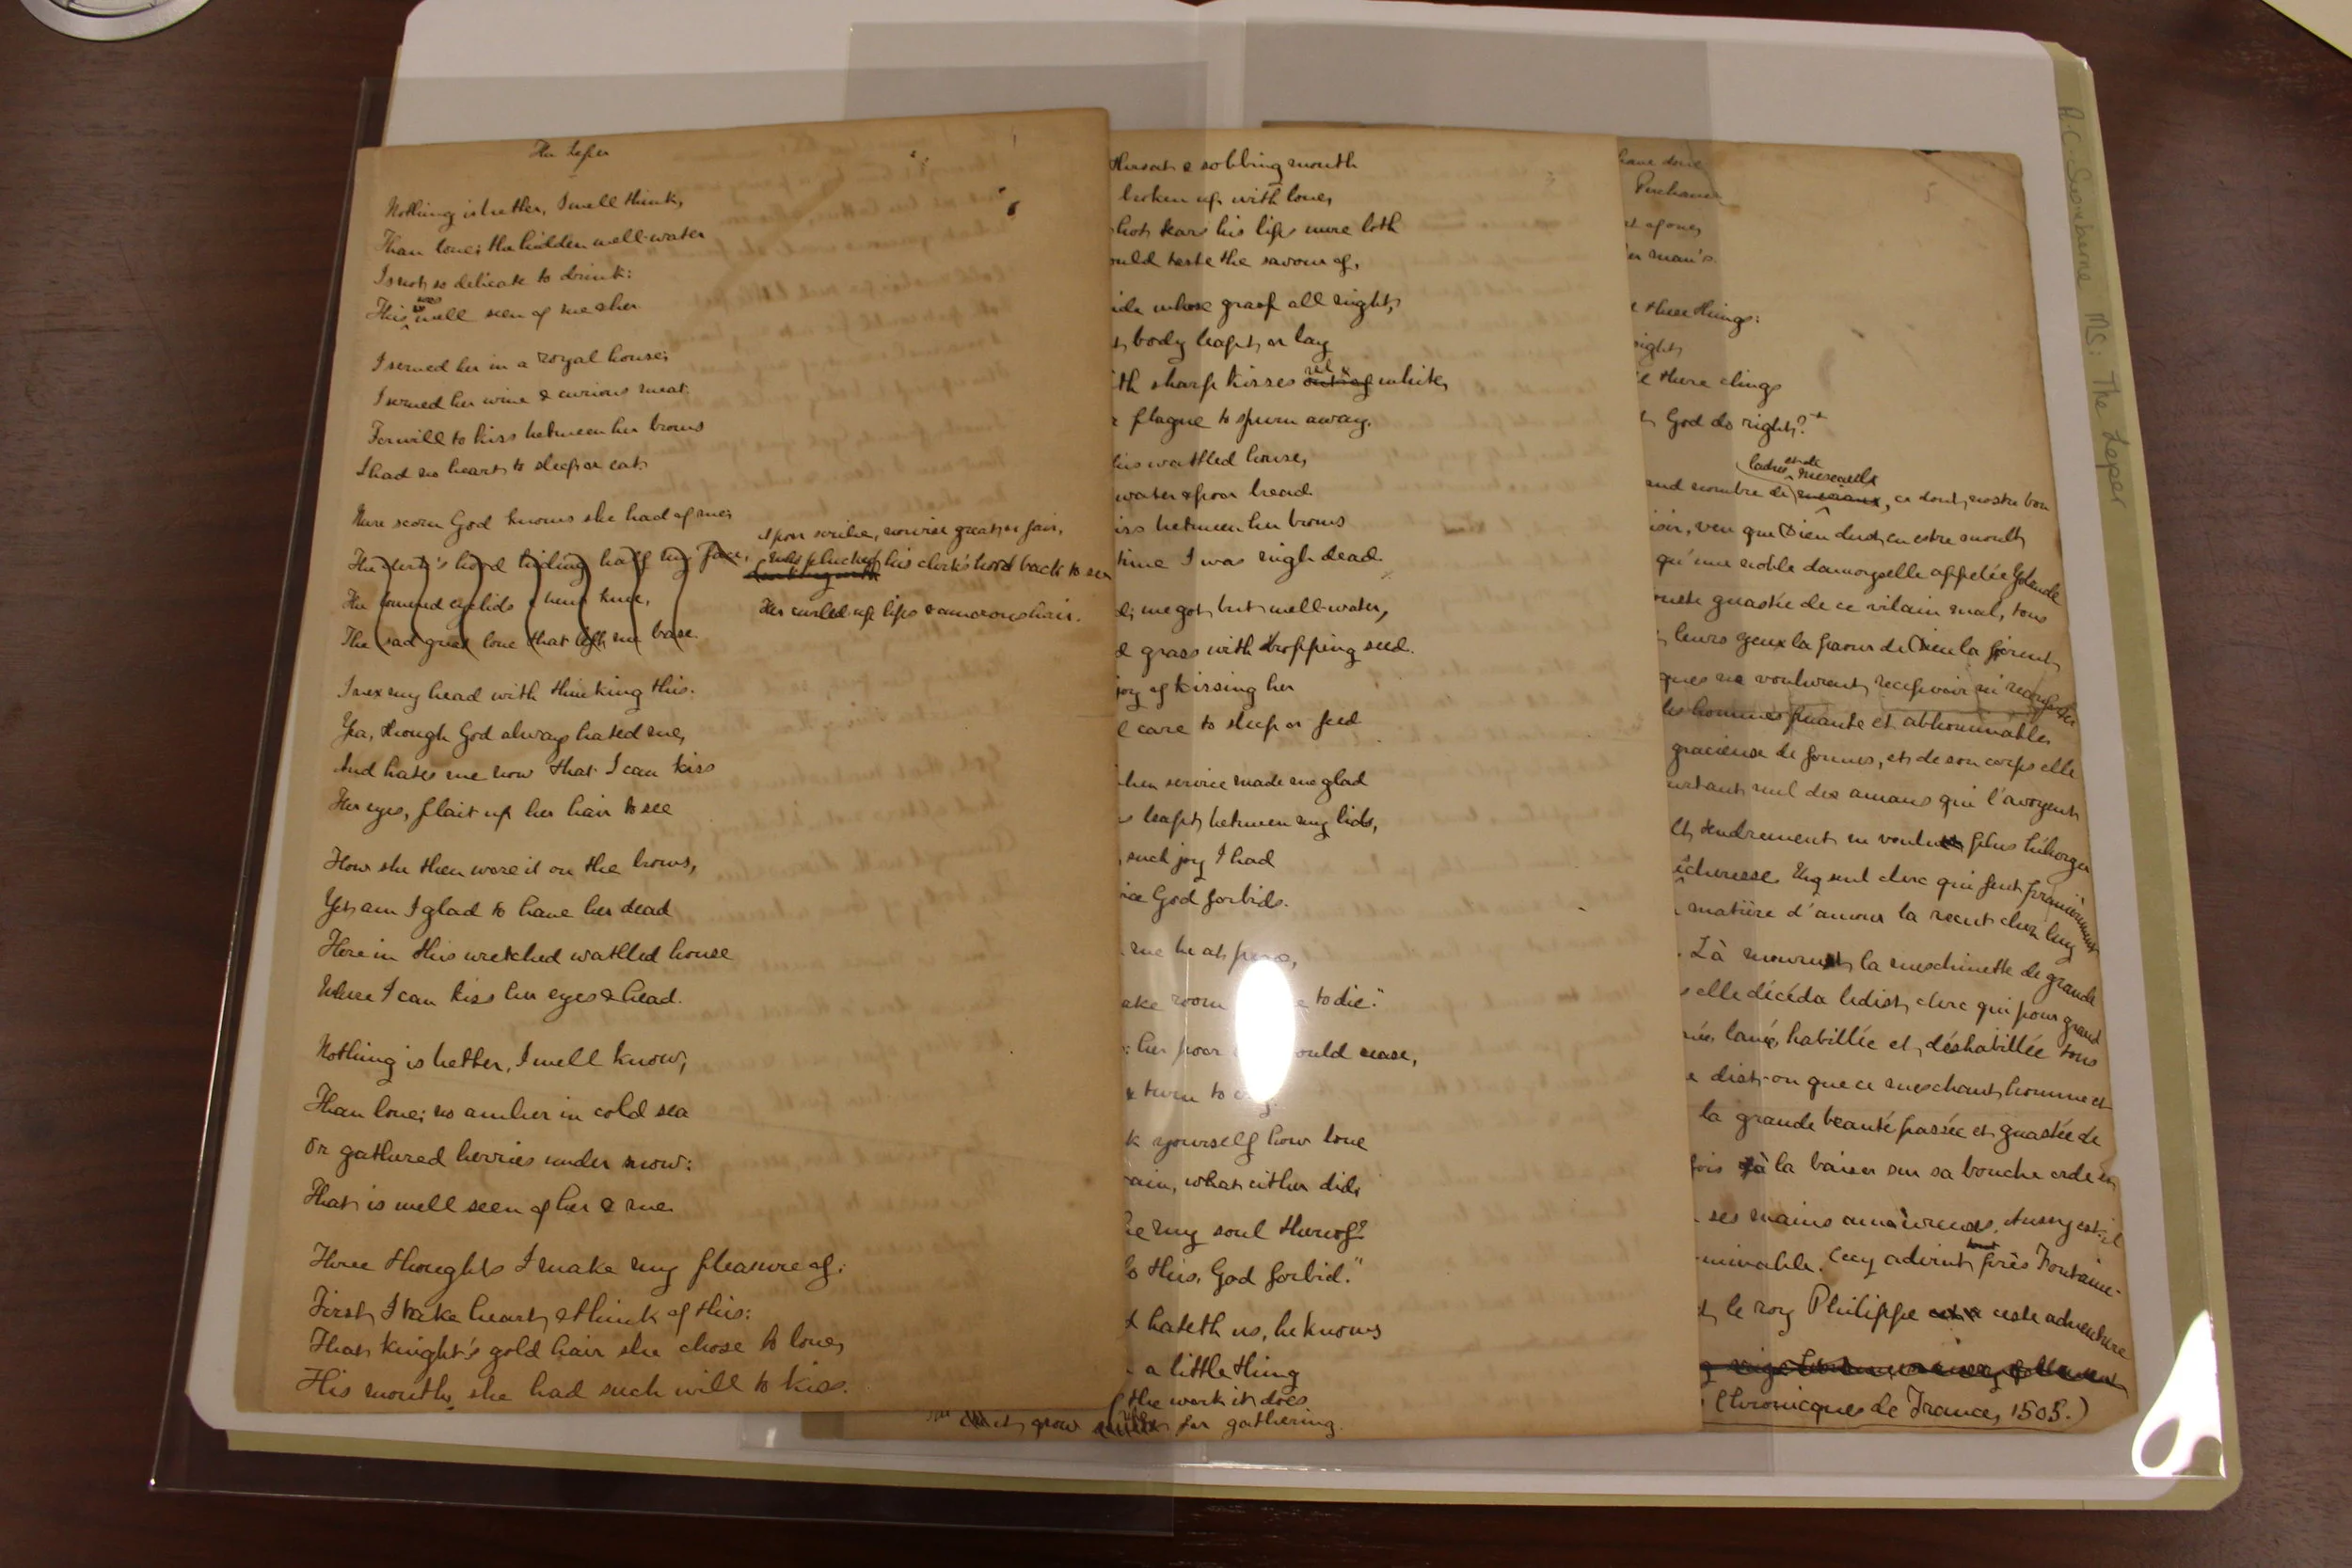 The Leper
Nothing is better, I well think,
Than love; the hidden well-water
Is not so delicate to drink:
This was well seen of me & her
I served her in a royal house;
I served her wine & curious meat.
For will to kiss between her brows
I had no heart to sleep or eat
Mere scorn God knows she had of me;
The clerk's hood hiding half my face,
The lowered eyelids & bent knee,
The sad great love that left me base.
A poor scribe, nowise great or fair,
Who plucked his clerk's hood back to see
Her curled-up lips & amorous hair.
I vex my head with thinking this.
Yea, though God always hated me,
And hates me now that I can kiss
Her eyes, plait up her hair to see
How she then wore it on the brows,
Yet am I glad to have her dead
Here in this wretched wattled house
Where I can kiss her eyes & head.
Nothing is better, I well know,
Than love; no amber in cold sea
Or gathered berries under snow:
That is well seen of her & me.
Three thoughts I make my pleasure of:
First I take heart & think of this:
That knight's gold hair she chose to love,
His mouth she had such will to kiss.
throat & sobbing mouth
broken up with love,
hot tears his lips were loth
ould taste the savour of,
ide whose grasp all night,
body leapt or lay
th sharp kisses red & white,
plague to spurn away.
his wattled house,
water & poor bread
iss between her brows
time I was nigh dead.
d; we got but well-water,
d grass with dropping seed.
joy of kissing her
l care to sleep or feed
her service made me glad
s leapt between my lids,
such joy I had
ice God forbids.
me be at peace,
ake room to die."
: her poor ould cease,
turn to
k yourself how love
ain, what either did,
be my soul thereof?
o this, God forbid."
d hateth us, he knows
a little thing
the work it does
grow for gathering.
have done
Perchance
t of one,
er man's.
e three things:
right,
e there clings
t God do right?
ladres et de meseaulx
and nombre de meseaux, ce dont nostre bon
isir, veu que Dieu dust en estre moult
qu'une noble damoyselle appelée Yolande
ouste guastée de ce vilain mal, tous
leurs yeux la paour de Dieu la firent
ques ne voulurent recepvoir ni reconforter
les hommes puante et abhominable
gracieuse de formes, et de son corps elle
urtant nul des amans qui l'avoyent
et tendrement ne voulut plus héberger
écheresse. Ung seul clerc qui feut premièrement
matière d'amour la reçut chez luy
Là mourut la meschinette de grande
s elle décéda ledist clerc qui pour grand
née, lavée, habillée et déshabillée tous
e dist-on que ce meschant homme et
la grande beauté passée et guastée de
fois à la baiser sur sa bouche orde et
ses mains amoureuses. Aussy est-il
minable. Cecy advint tout près Fontaine-
t le roy Philippe ceste adventure
(Chronicques de France, 1505.)
A.C. Swinburne MS: The Leper